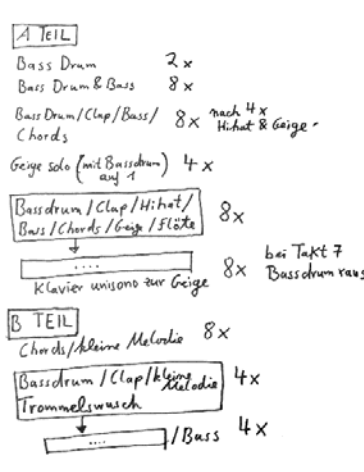 A TEIL
Bass Drum 2x
Bass Drum & Bass 8x
Bass Drum/Clap/Bass/ 8x nach 4x
Chords Hihat & Geige
Geige solo (mit Bassdrum) 4x
auf 1
Bassdrum/Clap/Hihat/ 8x
Bass/Chords/Geige/Flöte
.... 8x bei Takt 7
Klavier unisono zur Geige Bassdrum raus
B TEIL
Chords/kleine Melodie 8x
Bassdrum/Clap/kleine Melodie 4x
Trommelswusch
.... /Bass 4x